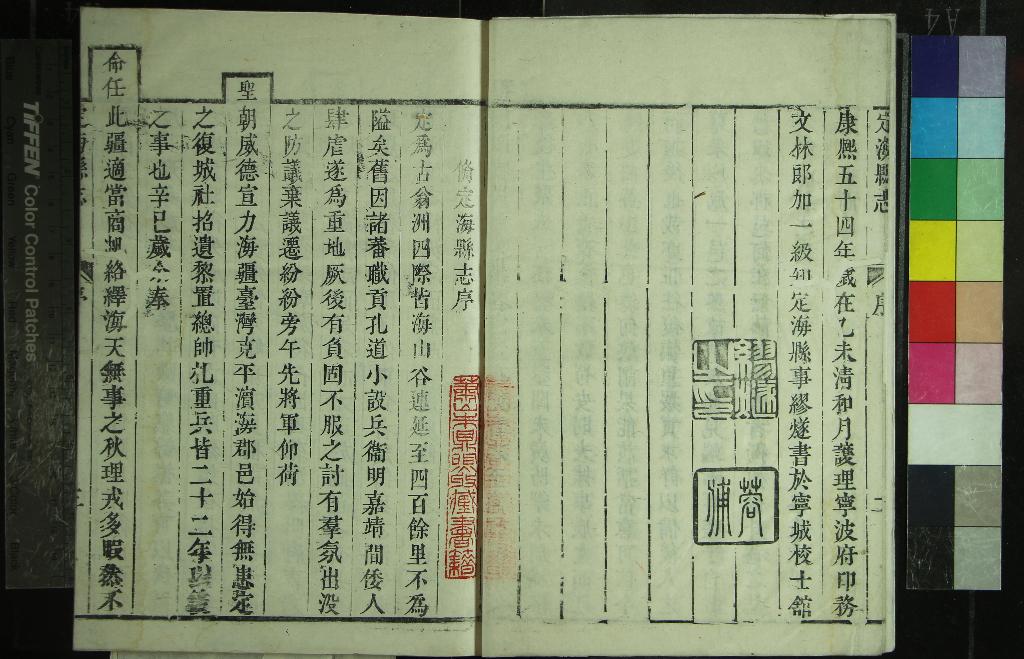 定海縣志
序
康熙五十四年歲在乙未清和月護理寧波府印務
文林郎加一級知定海縣事繆燧書於寧城校士館
蓉浦
脩定海縣志序
定為古翁洲四際皆海山谷連延至四百餘里不為
隘矣舊因諸蕃職貢孔道小設兵衞明嘉靖間倭人
肆虐遂為重地厥後有負固不服之討有羣氛出沒
之防議棄議遷紛紛旁午先將軍仰荷
聖朝威德宣力海疆臺灣克平濱海郡邑始得無患定
之復城社招遺黎置總帥札重兵皆二十二年
之事也辛巳歲余奉
命任此疆適當商舶絡繹海天無事之秋理戎多暇然不
定海縣志
序
TIFFEN Color Control Patches
Blue
Cyan
Green
Yellow